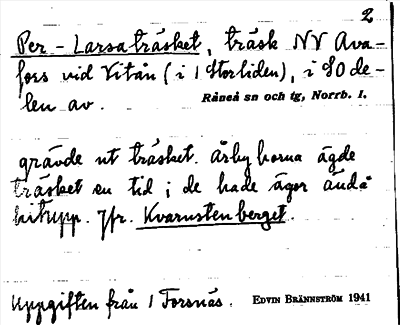 2
Per-Larsaträsket, träsk NV Ava-
fors vid Vitån (i 1 Storliden), i SO de-
len av.
Råneå sn och tg, Norrb. l.
grävde ut träsket. åsbyborna ägde
träsket en tid; de hade ägor ändå
hitupp. Jfr. Kvarnstenberget.
Uppgiften från 1 Forsnäs.
EDVIN BRÄNNSTRÖM 1941